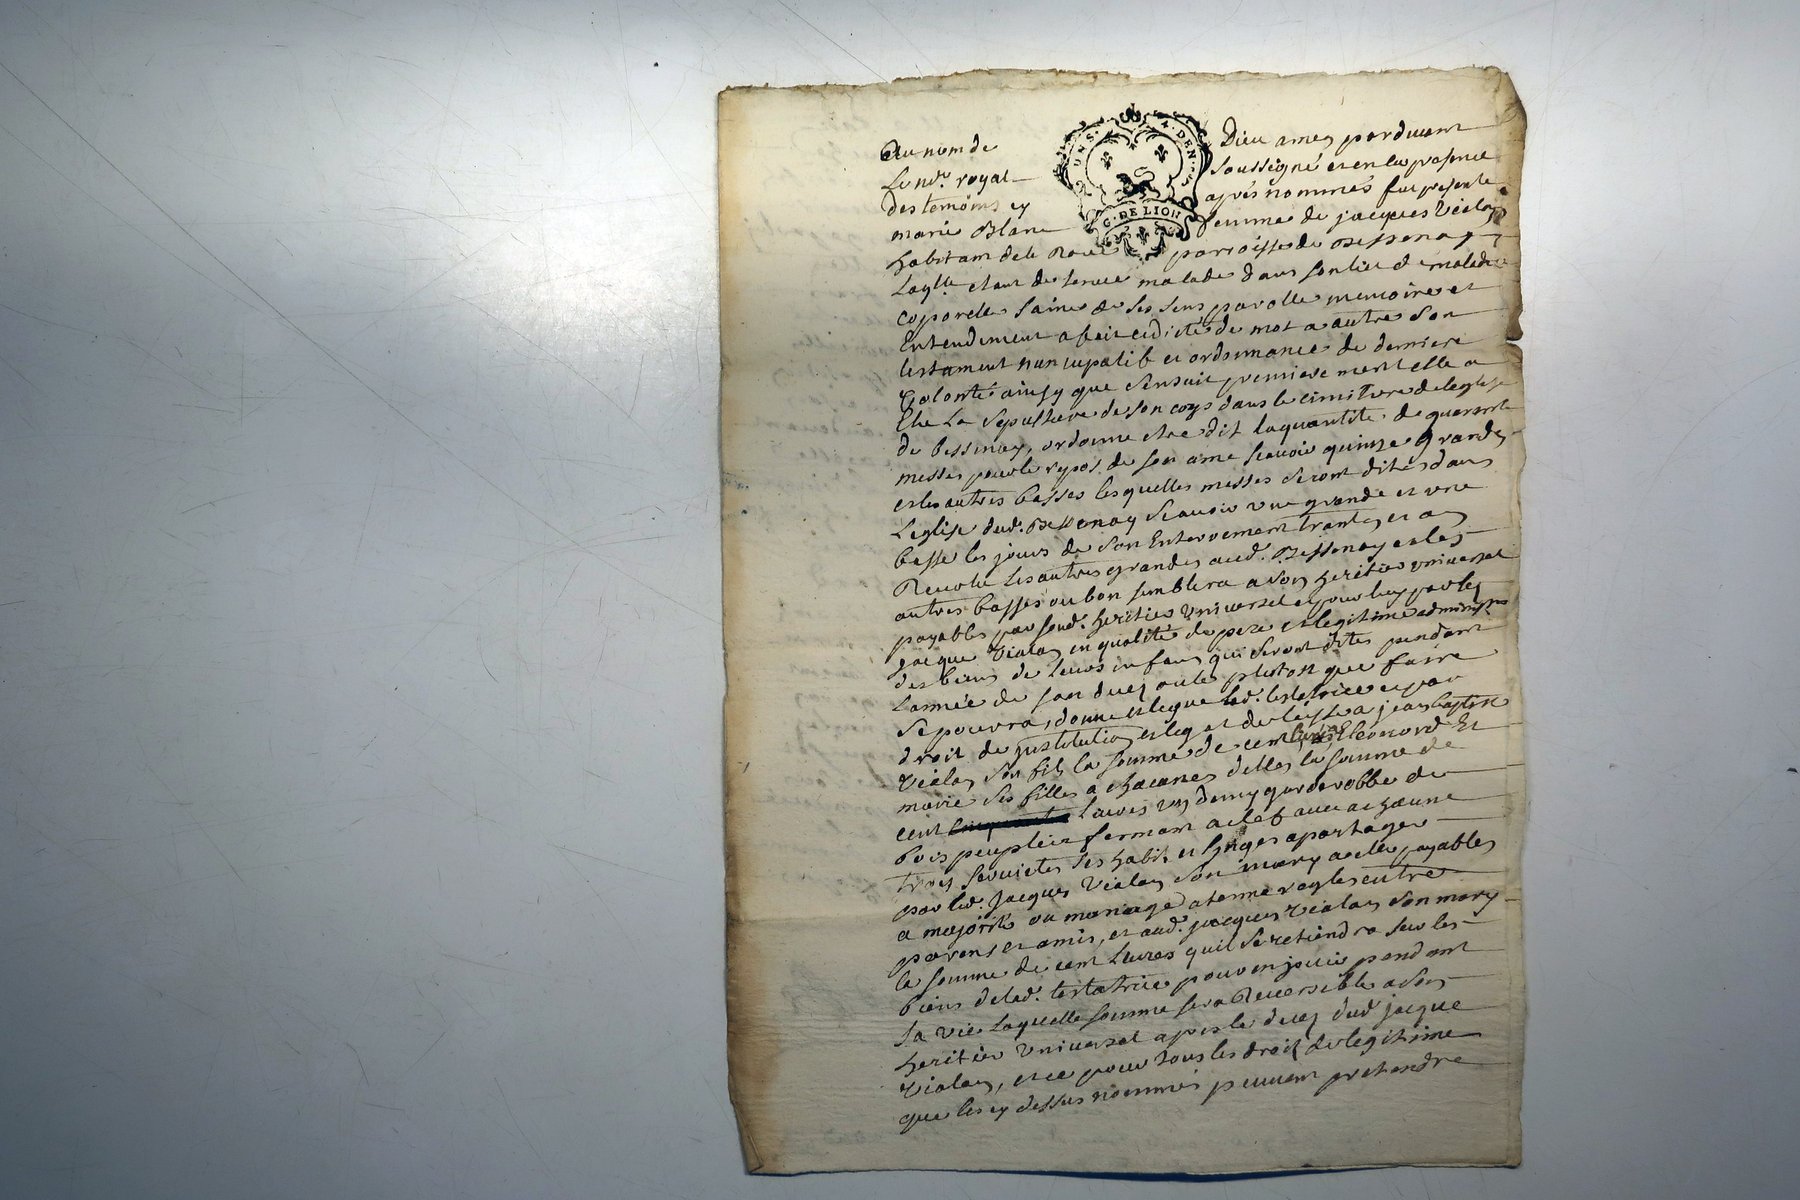 Au nom de Dieu amen pardevant
Le nore royal soussigné et en la presence
des temoins cy après nommés fut presente
marie Blanc femme de jacques Vialon
habitant de la parroisse de Bessenay
Laqlle etant detenue malade dans son lict de maladie
coporelle saine de ses sens parolle memoire et
Entendement a fait et dicté de mot a autre son
testament nuncupatif et ordonnance de derniere
Volonté ainsy que s'ensuit premierement elle a
Elu La sepulture de son corps dans le cimitiere de leglise
de bessenay, ordonne etre dit la quantité de quarante
messes pour le repos de son ame scavoir quinze grandes
et les autres basses lesquelles messes seront dites dans
L'eglise dud. Bessenay scavoir une grande et une
basse les jours de son Enterrement trantin et an
Revolu les autres grandes aud. Bessenay et les
autres basses ou bon semblera a son heritier universel
payables par sond. heritier universel et pour luy par led.
jacque Vialon en qualité de pere et legitime
des biens de leurs enfans qui seront dites pendant
Lannée de son deces ou le plustot que faire
se pourra, donne et legue lad. testatrice et par
droit de institution et leg et delaisse a jean baptiste
Vialon son fils la somme de cent livres Eleonord Et
marie ses filles a chacunes delles la somme de
cent livres un demy garderobbe de
bois peuplier fermant a clef avec a chacune
trois serviettes ses habits et linges a partager
par led. Jacques Vialon son mary a elle payables
a majorité ou mariage a terme regles entre
parens et amis, et aud. jacques Vialon son mary
la somme de cent Livres quil se retiendra sur les
biens de lad. testatrice pour en jouir pendant
sa vie laquelle somme sera Reversible a son
heritier universel apres le deces dud. jacque
Vialon, et ce pour tous les droits de legitime
que les cy dessus nommés peuvent pretendre
G. DE LION